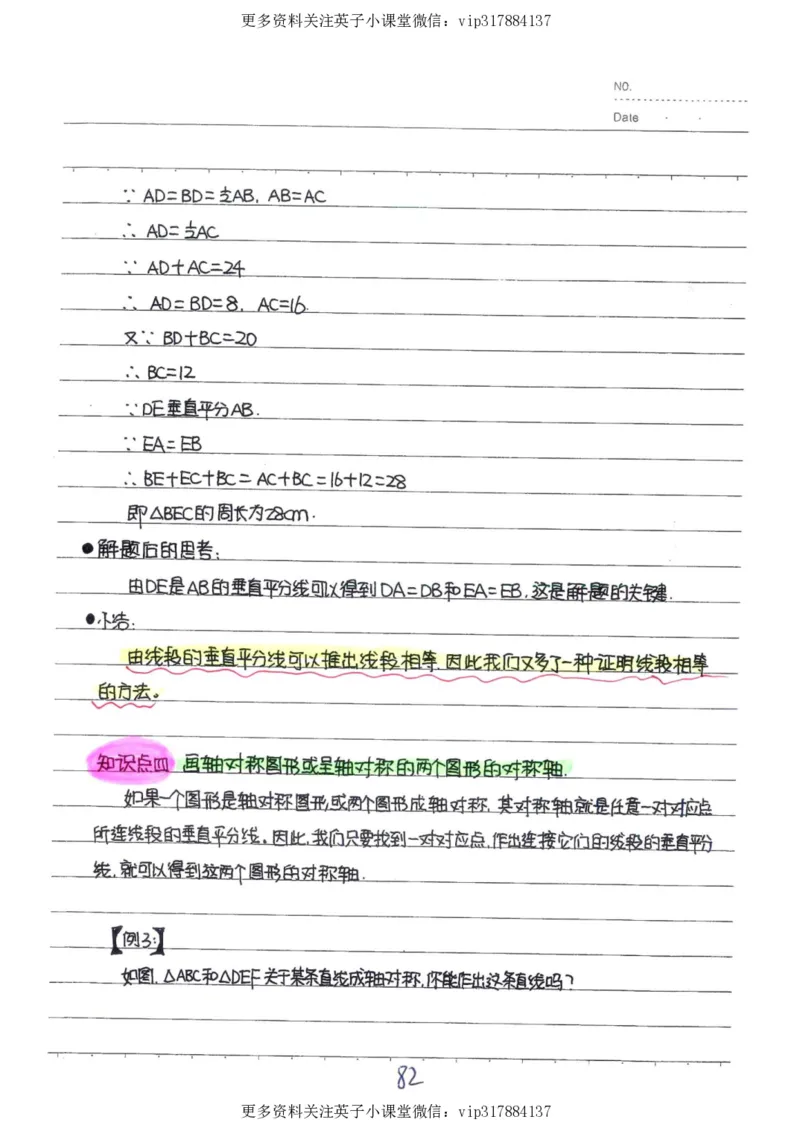 更多资料关注英子小课堂微信：vip317884137
NO.
Date
∵ AD=BD=½AB, AB=AC
∴ AD=½AC
∵ AD+AC=24
∴ AD=BD=8, AC=16.
又∵ BD+BC=20
∴ BC=12
∵DE垂直平分AB.
∵ EA=EB
∴ BE+EC+BC=AC+BC=16+12=28
即△BEC的周长为28cm.
●解题后的思考:
由DE是AB的垂直平分线可以得到DA=DB和EA=EB,这是解题的关键.
●小结:
由线段的垂直平分线可以推出线段相等.因此我们又多了一种证明线段相等
的方法。
知识点四 画轴对称图形或呈轴对称的两个图形的对称轴.
如果一个图形是轴对称图形,或两个图形成轴对称,其对称轴就是任意一对对应点
所连线段的垂直平分线。因此,我们只要找到一对对应点,作出连接它们的线段的垂直平分
线,就可以得到这两个图形的对称轴.
【例3:】
如图,△ABC和△DEF关于某条直线成轴对称,你能作出这条直线吗?
82
更多资料关注英子小课堂微信：vip317884137